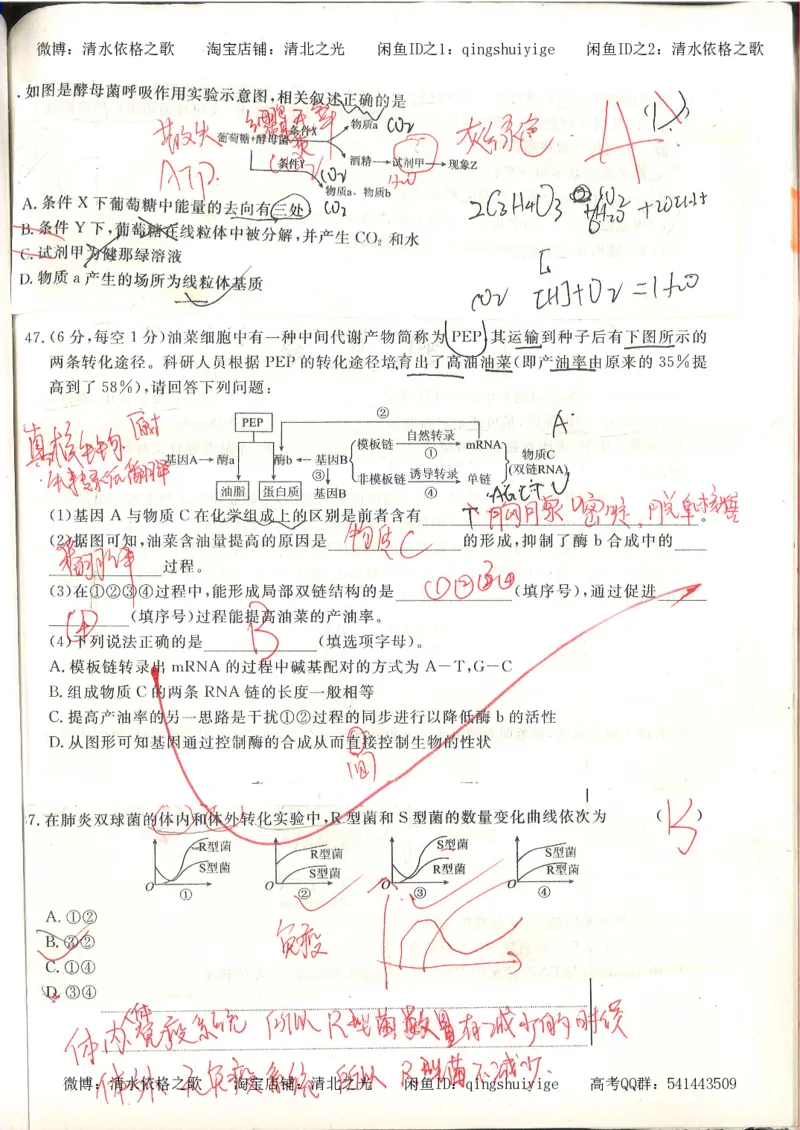 微博：清水依格之歌 淘宝店铺：清北之光 闲鱼ID之1：qingshuiyige 闲鱼ID之2：清水依格之歌
.如图是酵母菌呼吸作用实验示意图,相关叙述正确的是
散失 细胞 A (1)
条件X 物质a CO2 灰绿色
葡萄糖+酵母菌
条件Y 酒精 试剂甲 ? 现象Z
ATP CO2 H2O
物质a、物质b
A.条件 X 下葡萄糖中能量的去向有三处 CO2
B.条件 Y 下,葡萄糖在线粒体中被分解,并产生 CO2 和水
C.试剂甲为健那绿溶液
D.物质 a 产生的场所为线粒体基质
CO2 [H]+O2=H2O
47.(6 分,每空 1 分)油菜细胞中有一种中间代谢产物简称为 PEP,其运输到种子后有下图所示的
两条转化途径。科研人员根据 PEP 的转化途径培育出了高油油菜(即产油率由原来的 35%提
高到了 58%),请回答下列问题:
②
PEP A.
真核生物 同时
模板链 自然转录 ① mRNA
基因A 酶a 酶b 基因B 物质C
(双链RNA)
③ 非模板链 诱导转录 ④ 单链
油脂 蛋白质 基因B
AGCT U
(1)基因 A 与物质 C 在化学组成上的区别是前者含有 胸腺嘧啶,脱氧核糖。
(2)据图可知,油菜含油量提高的原因是 物质C 的形成,抑制了酶 b 合成中的
翻译 过程。
(3)在①②③④过程中,能形成局部双链结构的是 ①②③④ (填序号),通过促进
④ (填序号)过程能提高油菜的产油率。
(4)下列说法正确的是 B (填选项字母)。
A.模板链转录出 mRNA 的过程中碱基配对的方式为 A—T,G—C
B.组成物质 C 的两条 RNA 链的长度一般相等
C.提高产油率的另一思路是干扰①②过程的同步进行以降低酶 b 的活性
D.从图形可知基因通过控制酶的合成从而直接控制生物的性状
间
7.在肺炎双球菌的体内和体外转化实验中,R 型菌和 S 型菌的数量变化曲线依次为 ( B )
R型菌 S型菌 O ①
R型菌 S型菌 O ②
S型菌 R型菌 O ③
S型菌 R型菌 O ④
A.①②
B.③②
C.①④
D.③④
免疫
体内 免疫系统 所以R型菌数量有减少的时候
体外 无免疫系统 所以R型菌不减少.
微博：清水依格之歌 淘宝店铺：清北之光 闲鱼ID：qingshuiyige 高考QQ群：541443509